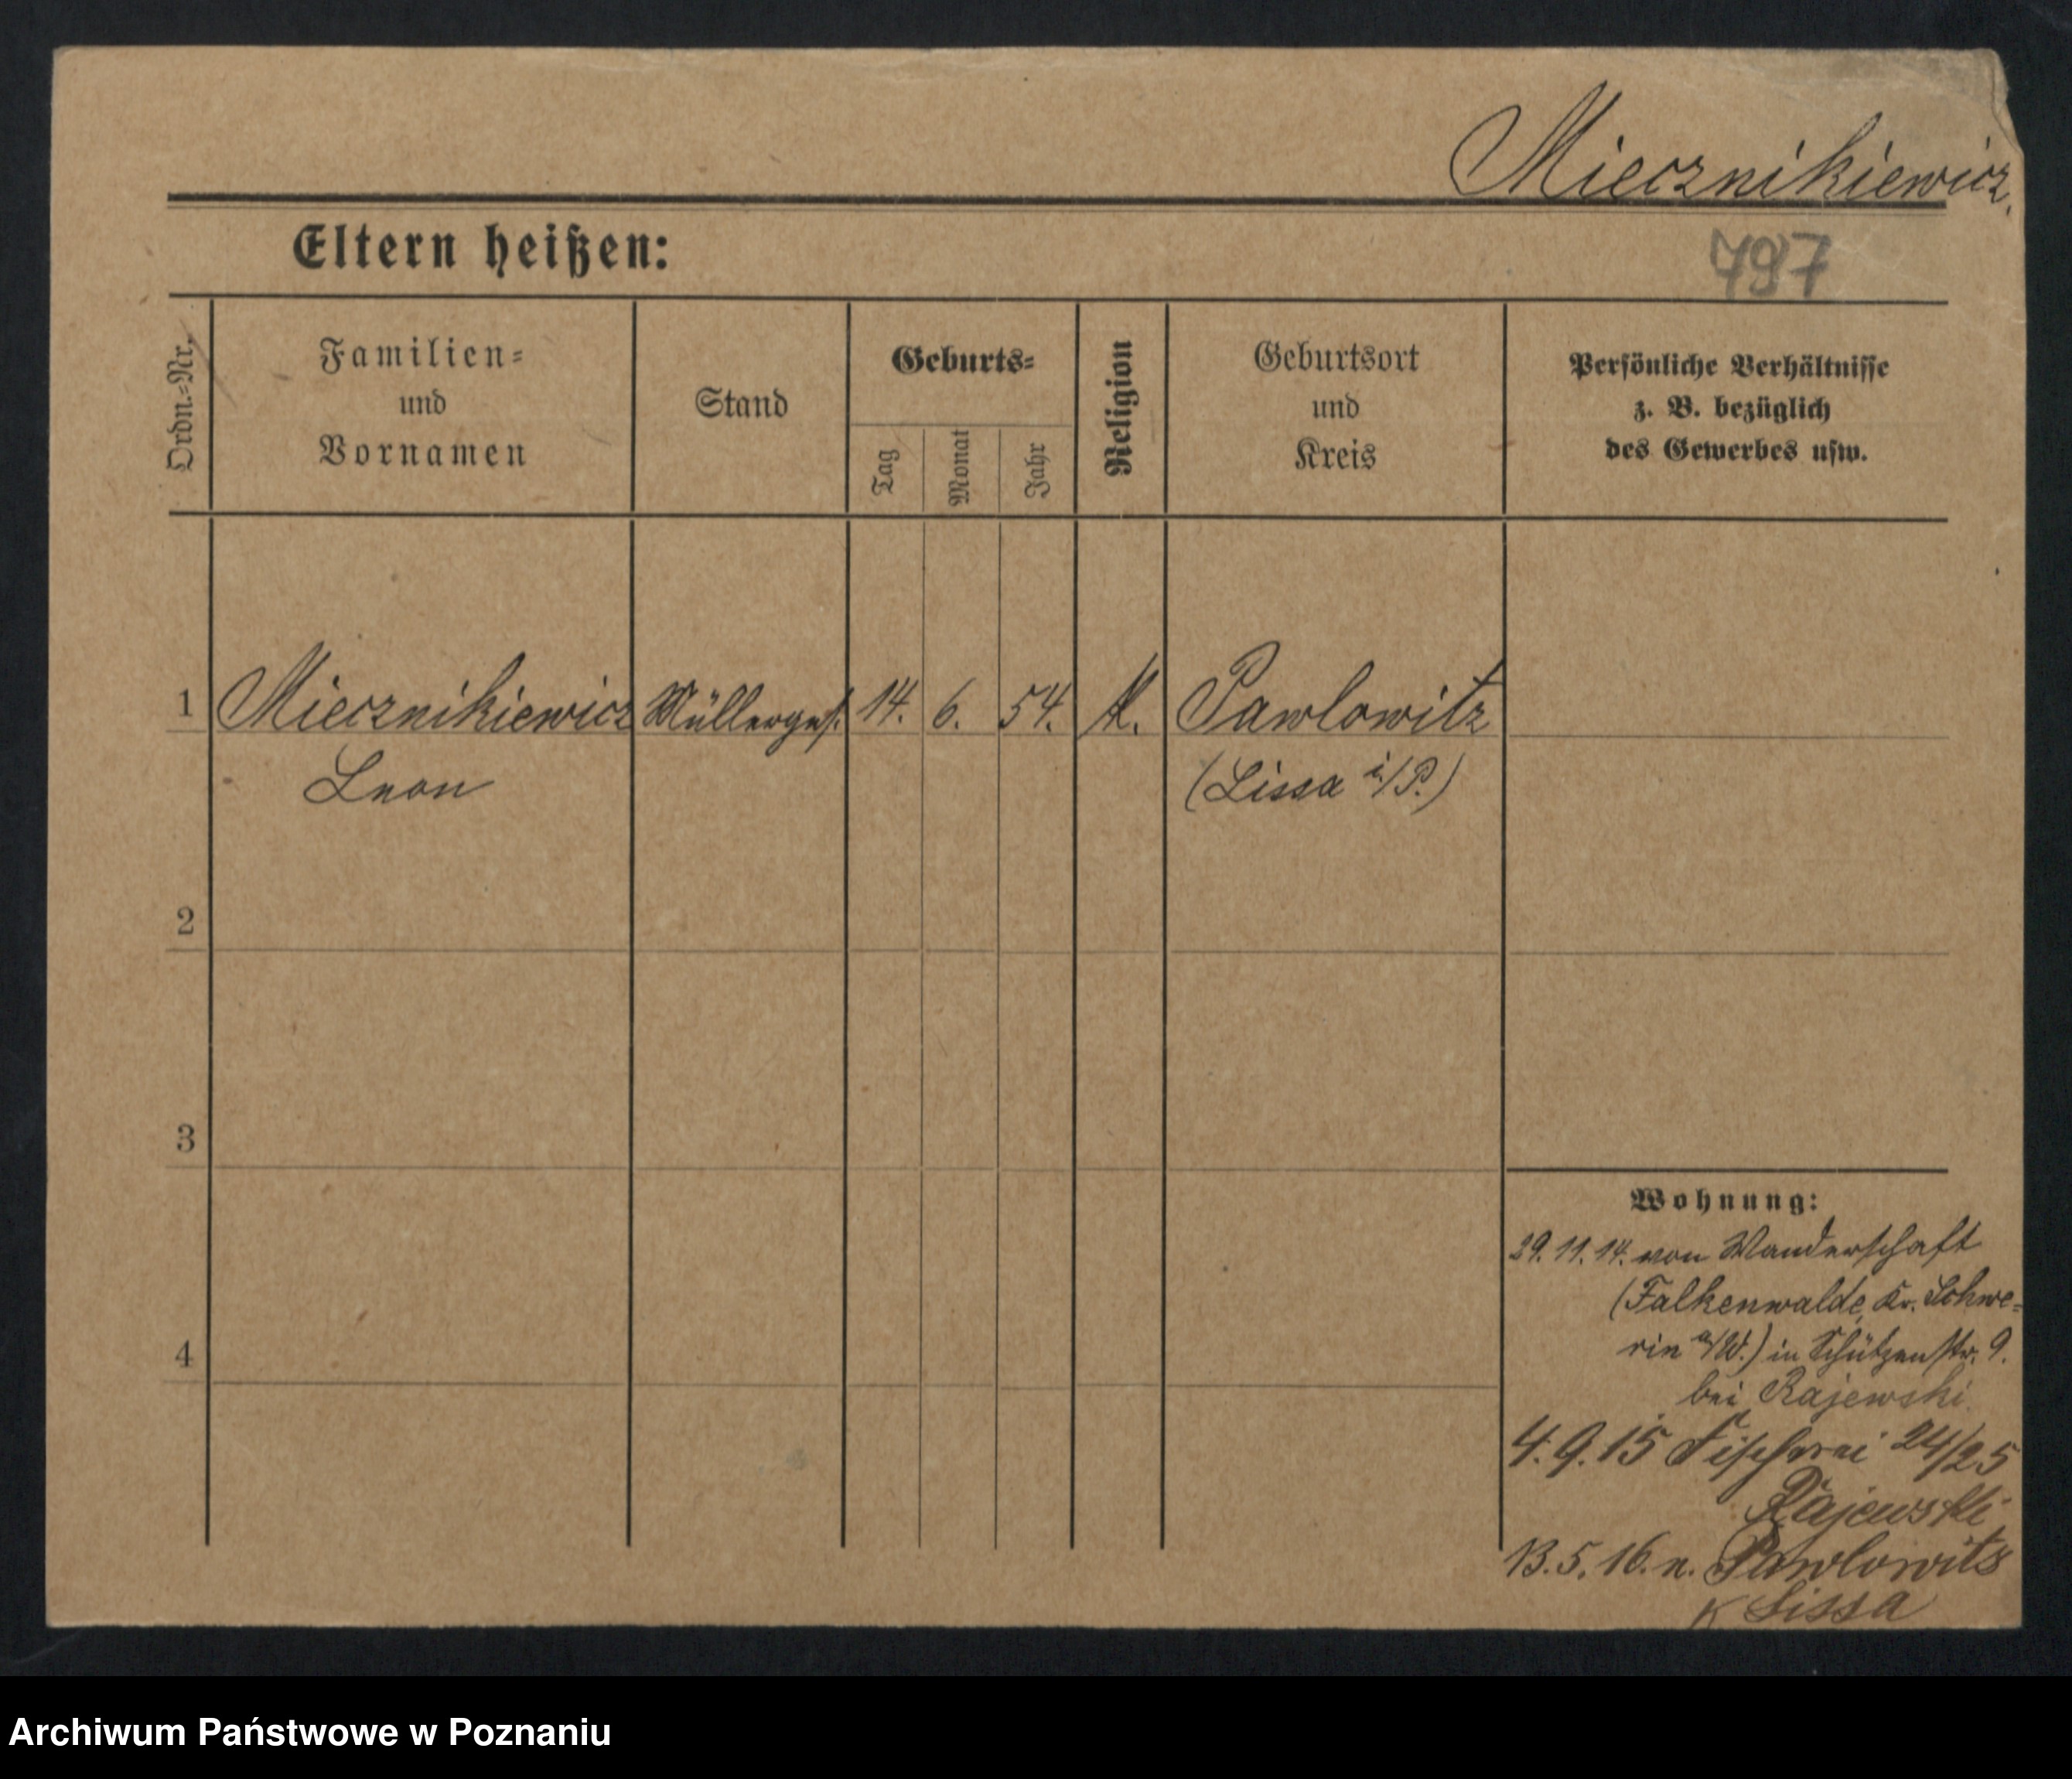 Miecznikiewicz.
Eltern heißen:
797
Ordn.=Nr.
Familien=
und
Vornamen
Stand
Geburts=
Tag
Monat
Jahr
Religion
Geburtsort
und
Kreis
Persönliche Verhältnisse
z. B. bezüglich
des Gewerbes usw.
1 Miecznikiewicz Müllerges. 14. 6. 54. K. Pawlowitz
Leon (Lissa i/P.)
2
3
4
Wohnung:
29. 11. 14. von Wanderschaft
(Falkenwalde, Kr. Schwe=
rin a/W.) in Schützenstr. 9.
bei Rajewski.
4. 9. 15 Fischerei 24/25
Rajewski
13. 5. 16. n. Pawlowitz
K Lissa
Archiwum Państwowe w Poznaniu